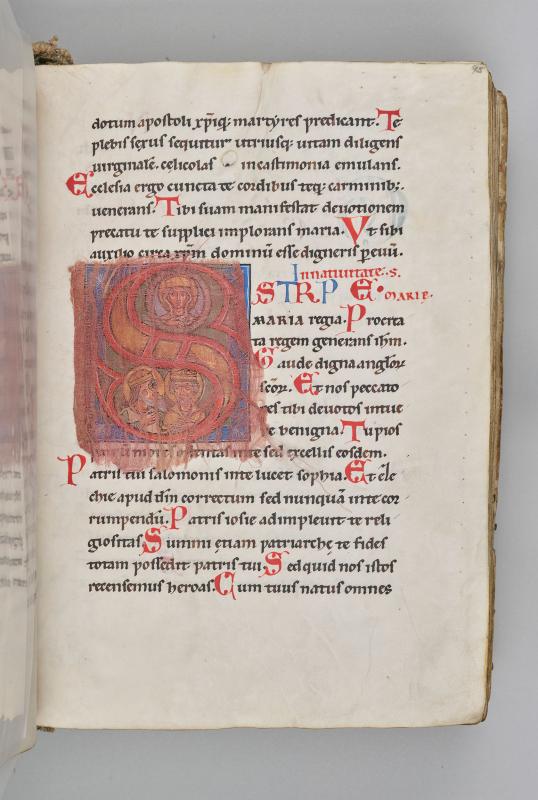 dotum apostoli xp̄iq; martyres predicant. Te
plebis sexus sequitur utriusq; uitam diligens
uirginalē. celicolas in castimonia emulans.
Ecclesia ergo cuncta te cordibus teq; carminib;
uenerans. Tibi suam manifestat deuotionem
precatu te supplici implorans maria. Vt sibi
auxilio circa xp̄m dominū esse digneris p euū.
In natiuitate. s.
MARIE.
STRPE
MARIA regia. Procrea
ta regem generans ihm.
Gaude digna anglor
Et nos pecca to
res tibi deuotos intue
re benigna. Tu pios
inte sed excellis eosdem.
Patris tui salomonis in te lucet sophia. Et
chie apud dm̄ correctum sed nunquā in te cor
rumpendū. Patris iosie adimpleuit te reli
giositas Summi etiam patriarche te fides
totam possedit patris tui. Sed quid nos istos
recensemus heroas. Cum tuus natus omnes